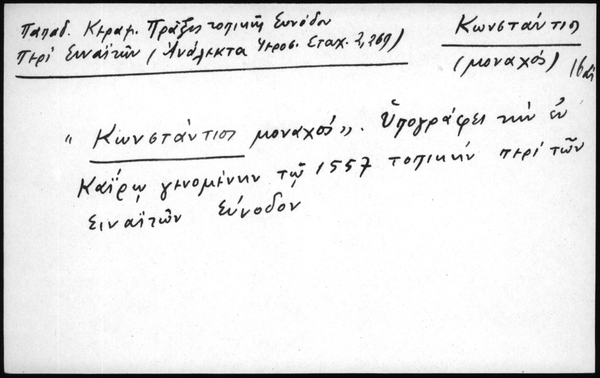 Παπαδ. Κεραμ. Πράξις τοπικῆς Συνόδου
περὶ Σιναϊτῶν (Ἀνάλεκτα Ἱεροσ. Σταχ. 2, 269)
Κωνστάντιος
(μοναχός) 16 αἰ
"Κωνστάντιος μοναχός". Ὑπογράφει τὴν ἐν
Καΐρῳ γενομένην τῷ 1557 τοπικὴν περὶ τῶν
Σιναϊτῶν Σύνοδον